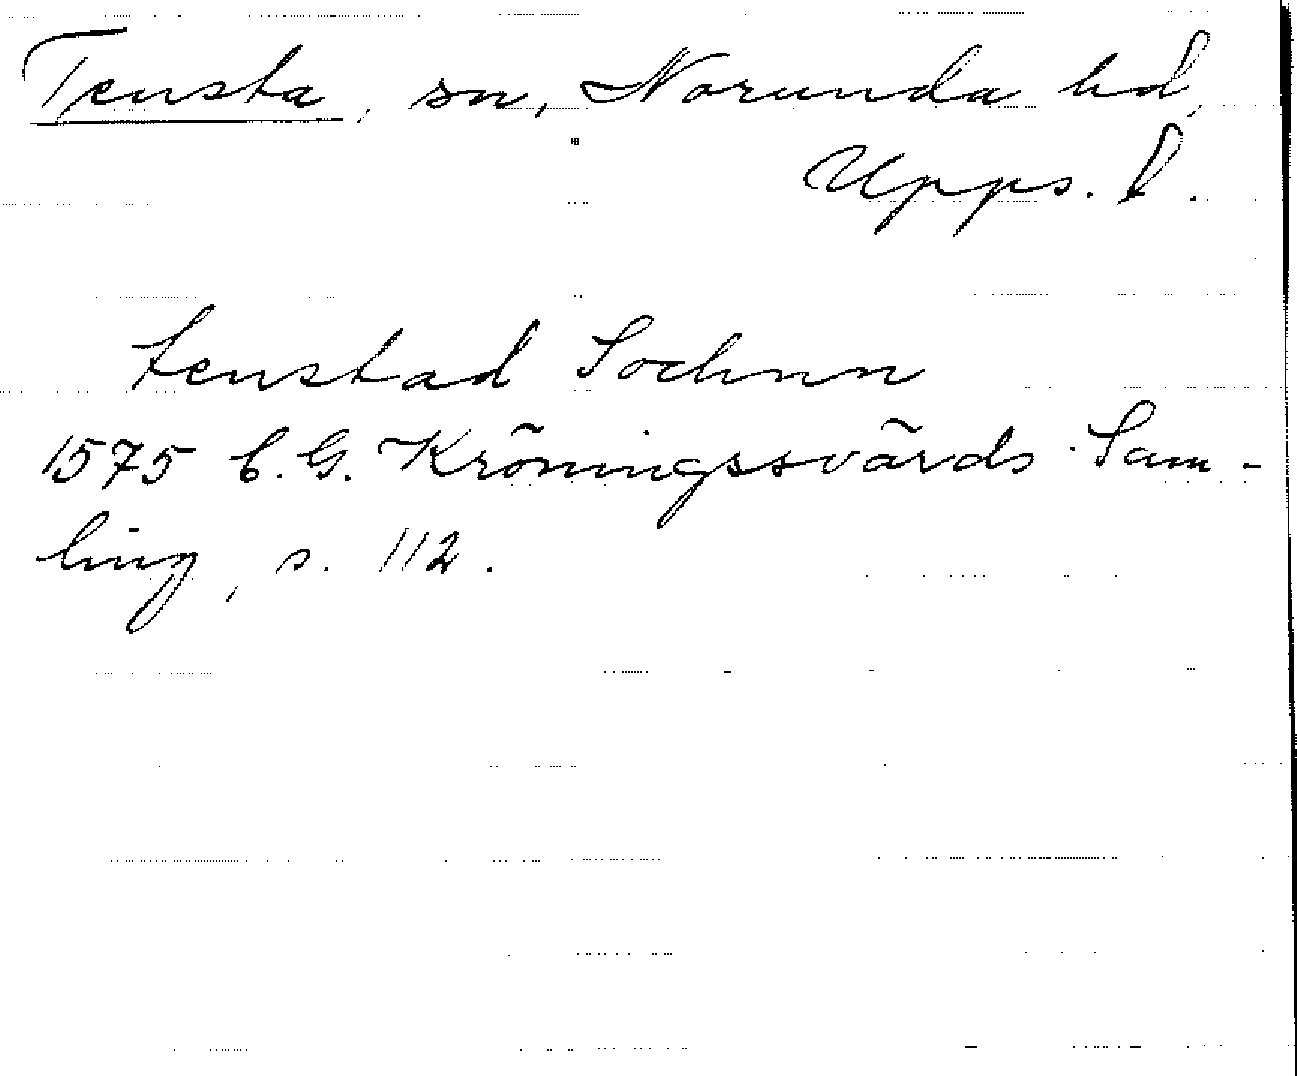 Tensta, sn, Norunda hd,
Upps. l.
Tenstad Sochnn
1575 C. G. Kröningssvärds Sam-
ling, s. 112.